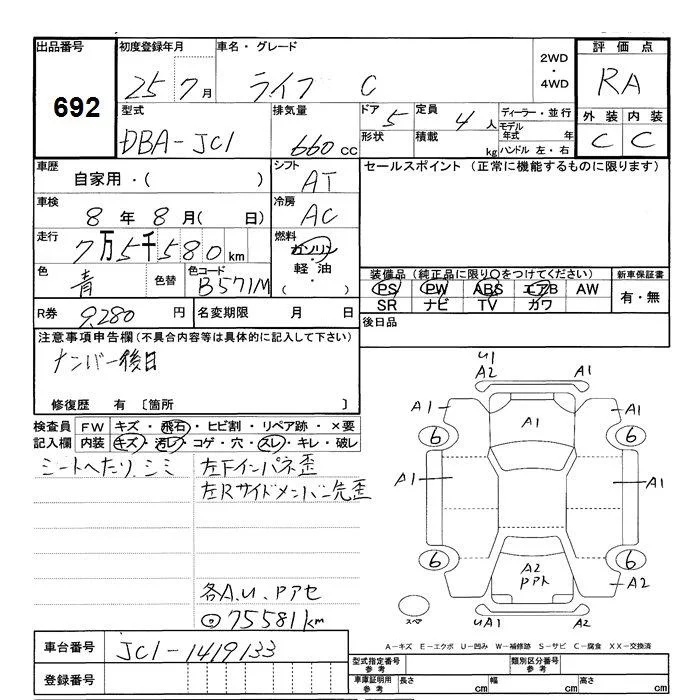 出品番号 692
初度登録年月 25 7 月
車名・グレード ライフ C
2WD ・ 4WD
評価点 RA
外装 内装
C C
型式 DBA-JC1
排気量 660 cc
ドア 5 定員 4 人
形状 積載 kg
ディーラー・並行
モデル年式 年
ハンドル 左・右
車歴 自家用・( )
シフト AT
セールスポイント (正常に機能するものに限ります)
車検 8 年 8 月( 日)
冷房 AC
走行 7万5千580 km
燃料 ガソリン ・ 軽油 ( )
色 青 色替 色コード B571M
装備品 (純正品に限り○をつけてください) 新車保証書
PS PW ABS エアB AW 有・無
SR ナビ TV カワ
R券 9,280 円 名変期限 月 日
後日品
注意事項申告欄(不具合内容等は具体的に記入して下さい)
ナンバー後日
修復歴 有 〔箇所 〕
検査員 FW キズ・飛石・ヒビ割・リペア跡・×要
記入欄 内装 キズ・汚レ・コゲ・穴・スレ・キレ・破レ
シートへたり、シミ
左Fインパネ歪
左Rサイドメンバー先歪
各A.U、Pアセ
◎75581km
U1
A2 A1
A1 A1 A1
6 6
A1 A1
6 6
A2
Pアト
A2
スペア
UA1 A2
A-キズ E-エクボ U-凹み W-補修跡 S-サビ C-腐食 XX-交換済
車台番号 JC1-1419133
登録番号
型式指定番号 参考 類別区分番号 参考
車庫証明用 参考 長さ cm 幅 cm 高さ cm